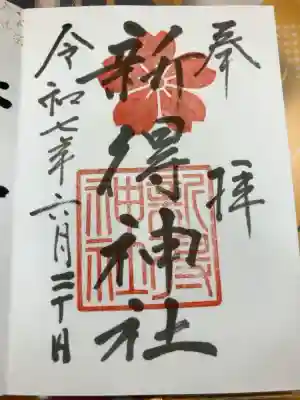 奉拝
新得神社
新得神社
令和七年六月二十日